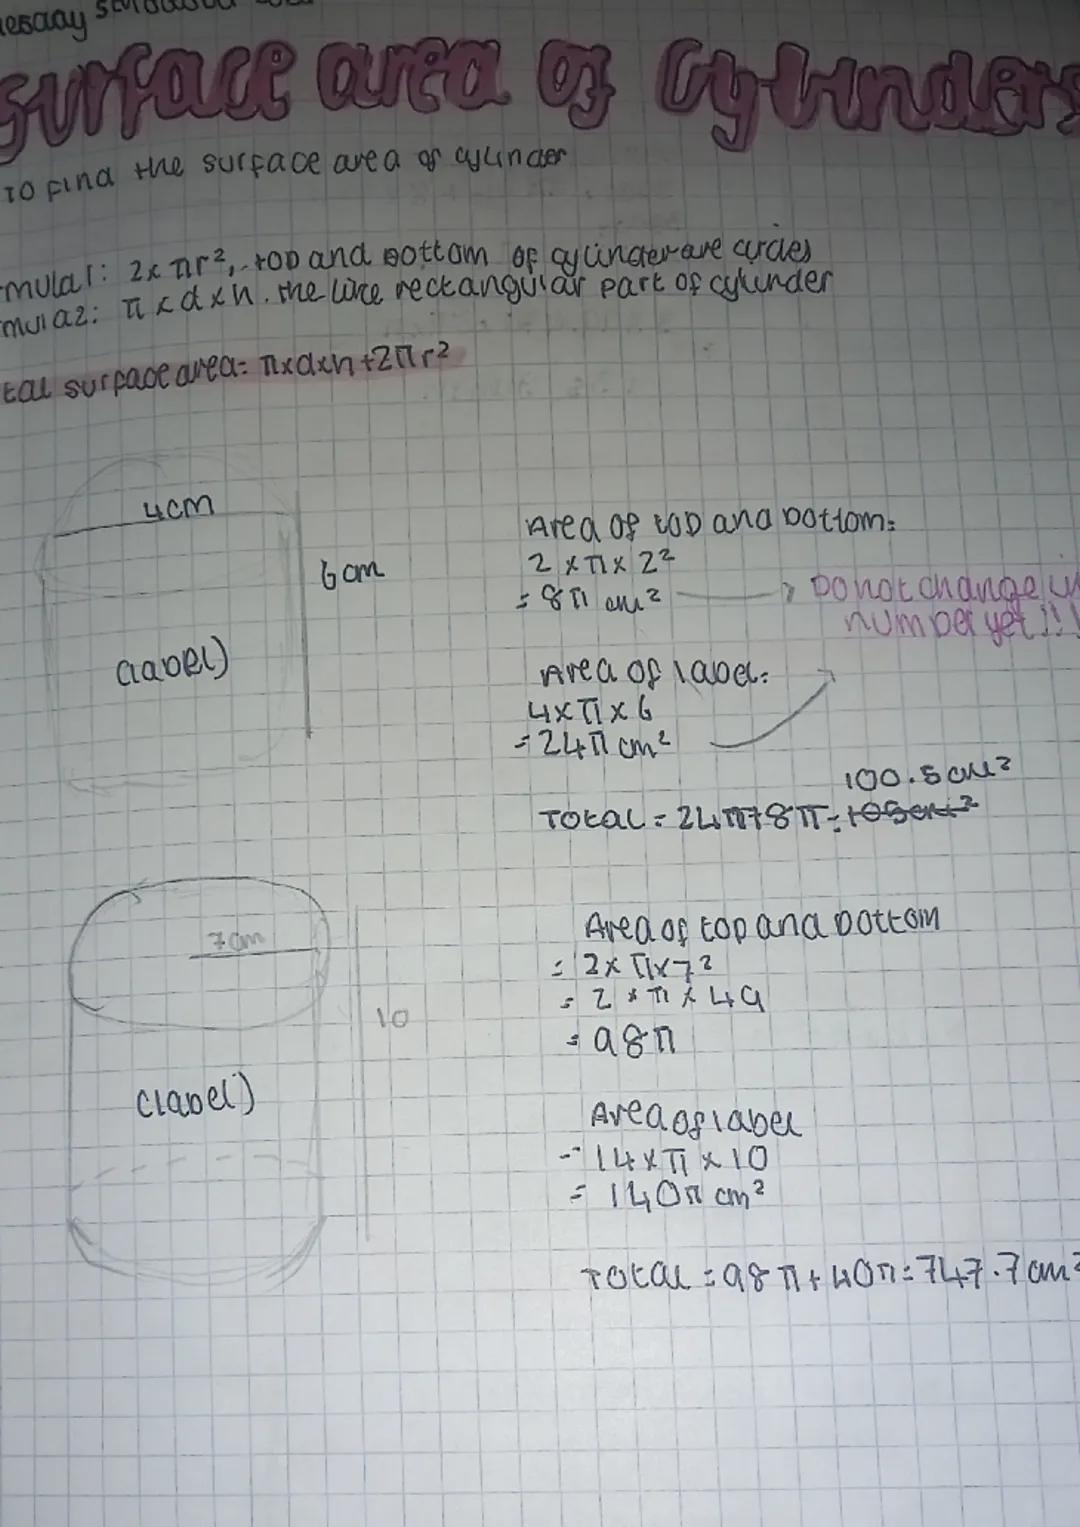 surface area of Cylinders
To find the surface area of cylinder
mula1: 2x πr², top and bottom of cylinder are circles
mula2: π x d x h. the like rectangular part of cylinder
tal surface area= πxdxh+2πr²
4cm
6cm
(label)
Area of top and bottom:
2 x π x 2²
= 8π cm²
Do not change in
number yet!!!
Area of label:
4xπx6
=24π cm²
100.5cm²
Total = 24π+8π=
7cm
10
(label)
Area of top and bottom
= 2x πx7²
= 2 x π x 49
= 98π
Area of label
= 14xπ x 10
= 140π cm²
Total = 98π+40π=747.7cm²